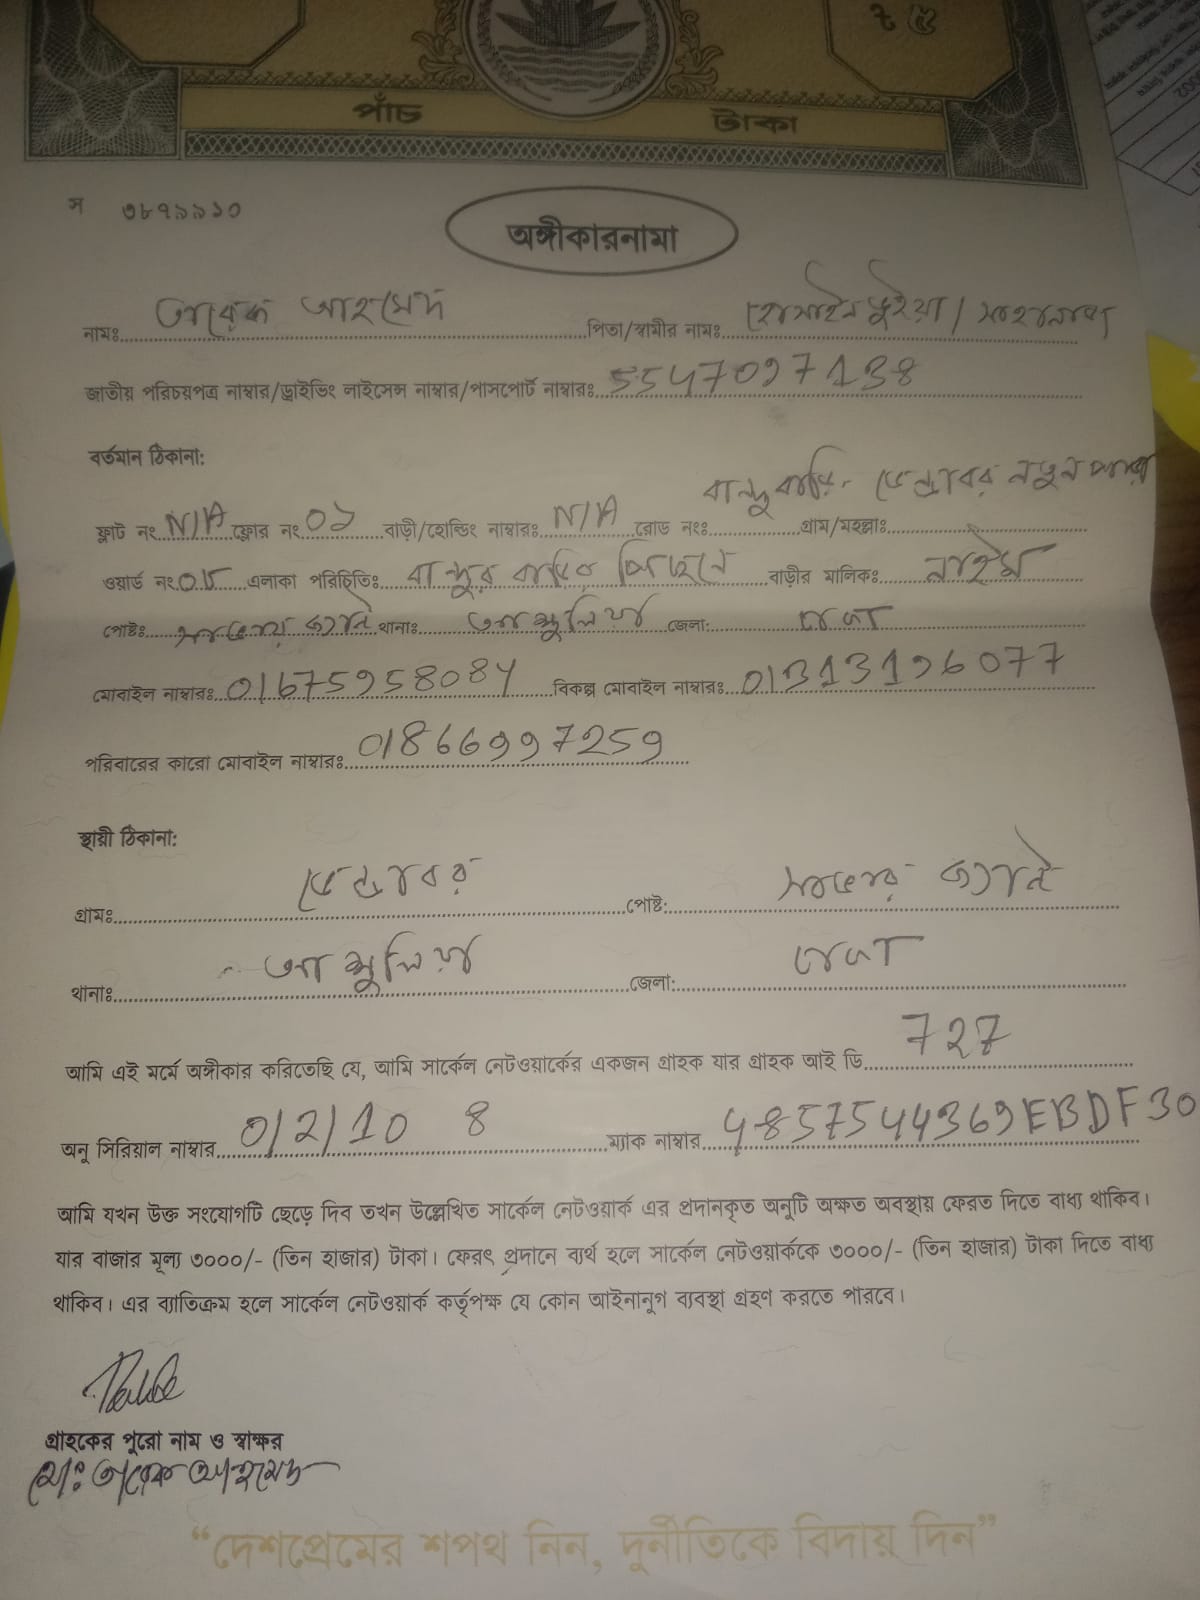 ৳ ৫
পাঁচ টাকা
স ৩৮৭৯৯১০
অঙ্গীকারনামা
নামঃ তারেক আহমেদ পিতা/স্বামীর নামঃ হোসাইন ভুইয়া /
জাতীয় পরিচয়পত্র নাম্বার/ড্রাইভিং লাইসেন্স নাম্বার/পাসপোর্ট নাম্বারঃ 5547027138
বর্তমান ঠিকানা:
ফ্লাট নং N/A ফ্লোর নং ০১ বাড়ী/হোল্ডিং নাম্বারঃ N/A রোড নংঃ গ্রাম/মহল্লাঃ নতুন পাড়া
ওয়ার্ড নং ০৮ এলাকা পরিচিতিঃ পিছনে বাড়ীর মালিকঃ নাইম
পোষ্টঃ থানাঃ আশুলিয়া জেলা: ঢাকা
মোবাইল নাম্বারঃ 01675958084 বিকল্প মোবাইল নাম্বারঃ 01313196077
পরিবারের কারো মোবাইল নাম্বারঃ 01866997259
স্থায়ী ঠিকানা:
গ্রামঃ পোষ্ট:
থানাঃ আশুলিয়া জেলা: ঢাকা
আমি এই মর্মে অঙ্গীকার করিতেছি যে, আমি সার্কেল নেটওয়ার্কের একজন গ্রাহক যার গ্রাহক আই ডি 727
অনু সিরিয়াল নাম্বার 0/2/10 8 ম্যাক নাম্বার 4857544369EBDF30
আমি যখন উক্ত সংযোগটি ছেড়ে দিব তখন উল্লেখিত সার্কেল নেটওয়ার্ক এর প্রদানকৃত অনুটি অক্ষত অবস্থায় ফেরত দিতে বাধ্য থাকিব।
যার বাজার মূল্য ৩০০০/- (তিন হাজার) টাকা। ফেরৎ প্রদানে ব্যর্থ হলে সার্কেল নেটওয়ার্ককে ৩০০০/- (তিন হাজার) টাকা দিতে বাধ্য
থাকিব। এর ব্যাতিক্রম হলে সার্কেল নেটওয়ার্ক কর্তৃপক্ষ যে কোন আইনানুগ ব্যবস্থা গ্রহণ করতে পারবে।
গ্রাহকের পুরো নাম ও স্বাক্ষর
মো: তারেক আহমেদ
“দেশপ্রেমের শপথ নিন, দুর্নীতিকে বিদায় দিন”